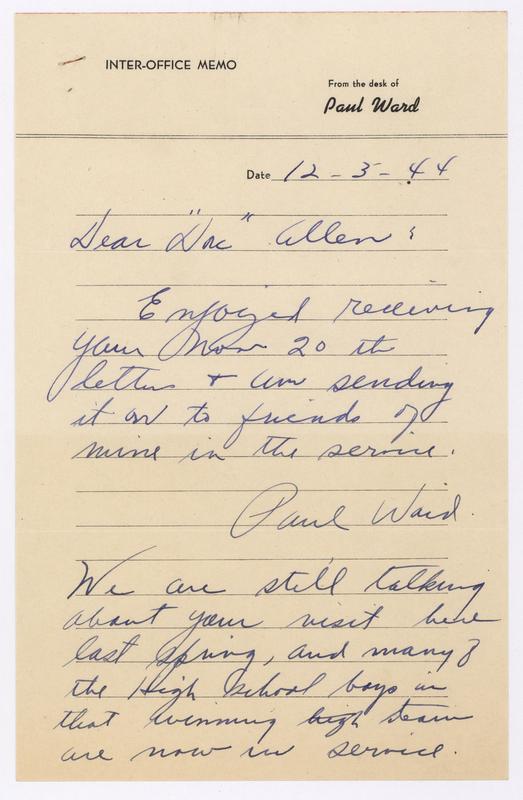 INTER-OFFICE MEMO
From the desk of
Paul Ward
Date 12-5-44
Dear "Doc" Allen:
Enjoyed receiving
your Nov 20th
letter + am sending
it on to friends of
mine in the service.
Paul Ward.
We are still talking
about your visit here
last spring, and many of
the High School boys in
that winning high team
are now in service.